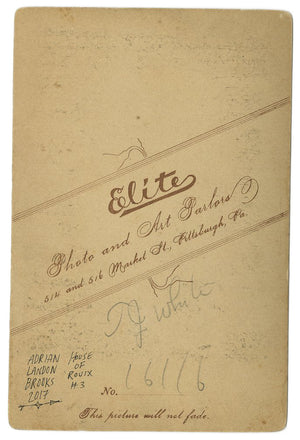 Elite
Photo and Art Parlors
514 and 516 Market St., Pittsburgh, Pa.
White
ADRIAN
LANDON
BROOKS
2017
HOUSE
OF
ROULX
#3
No. 16116
This picture will not fade.